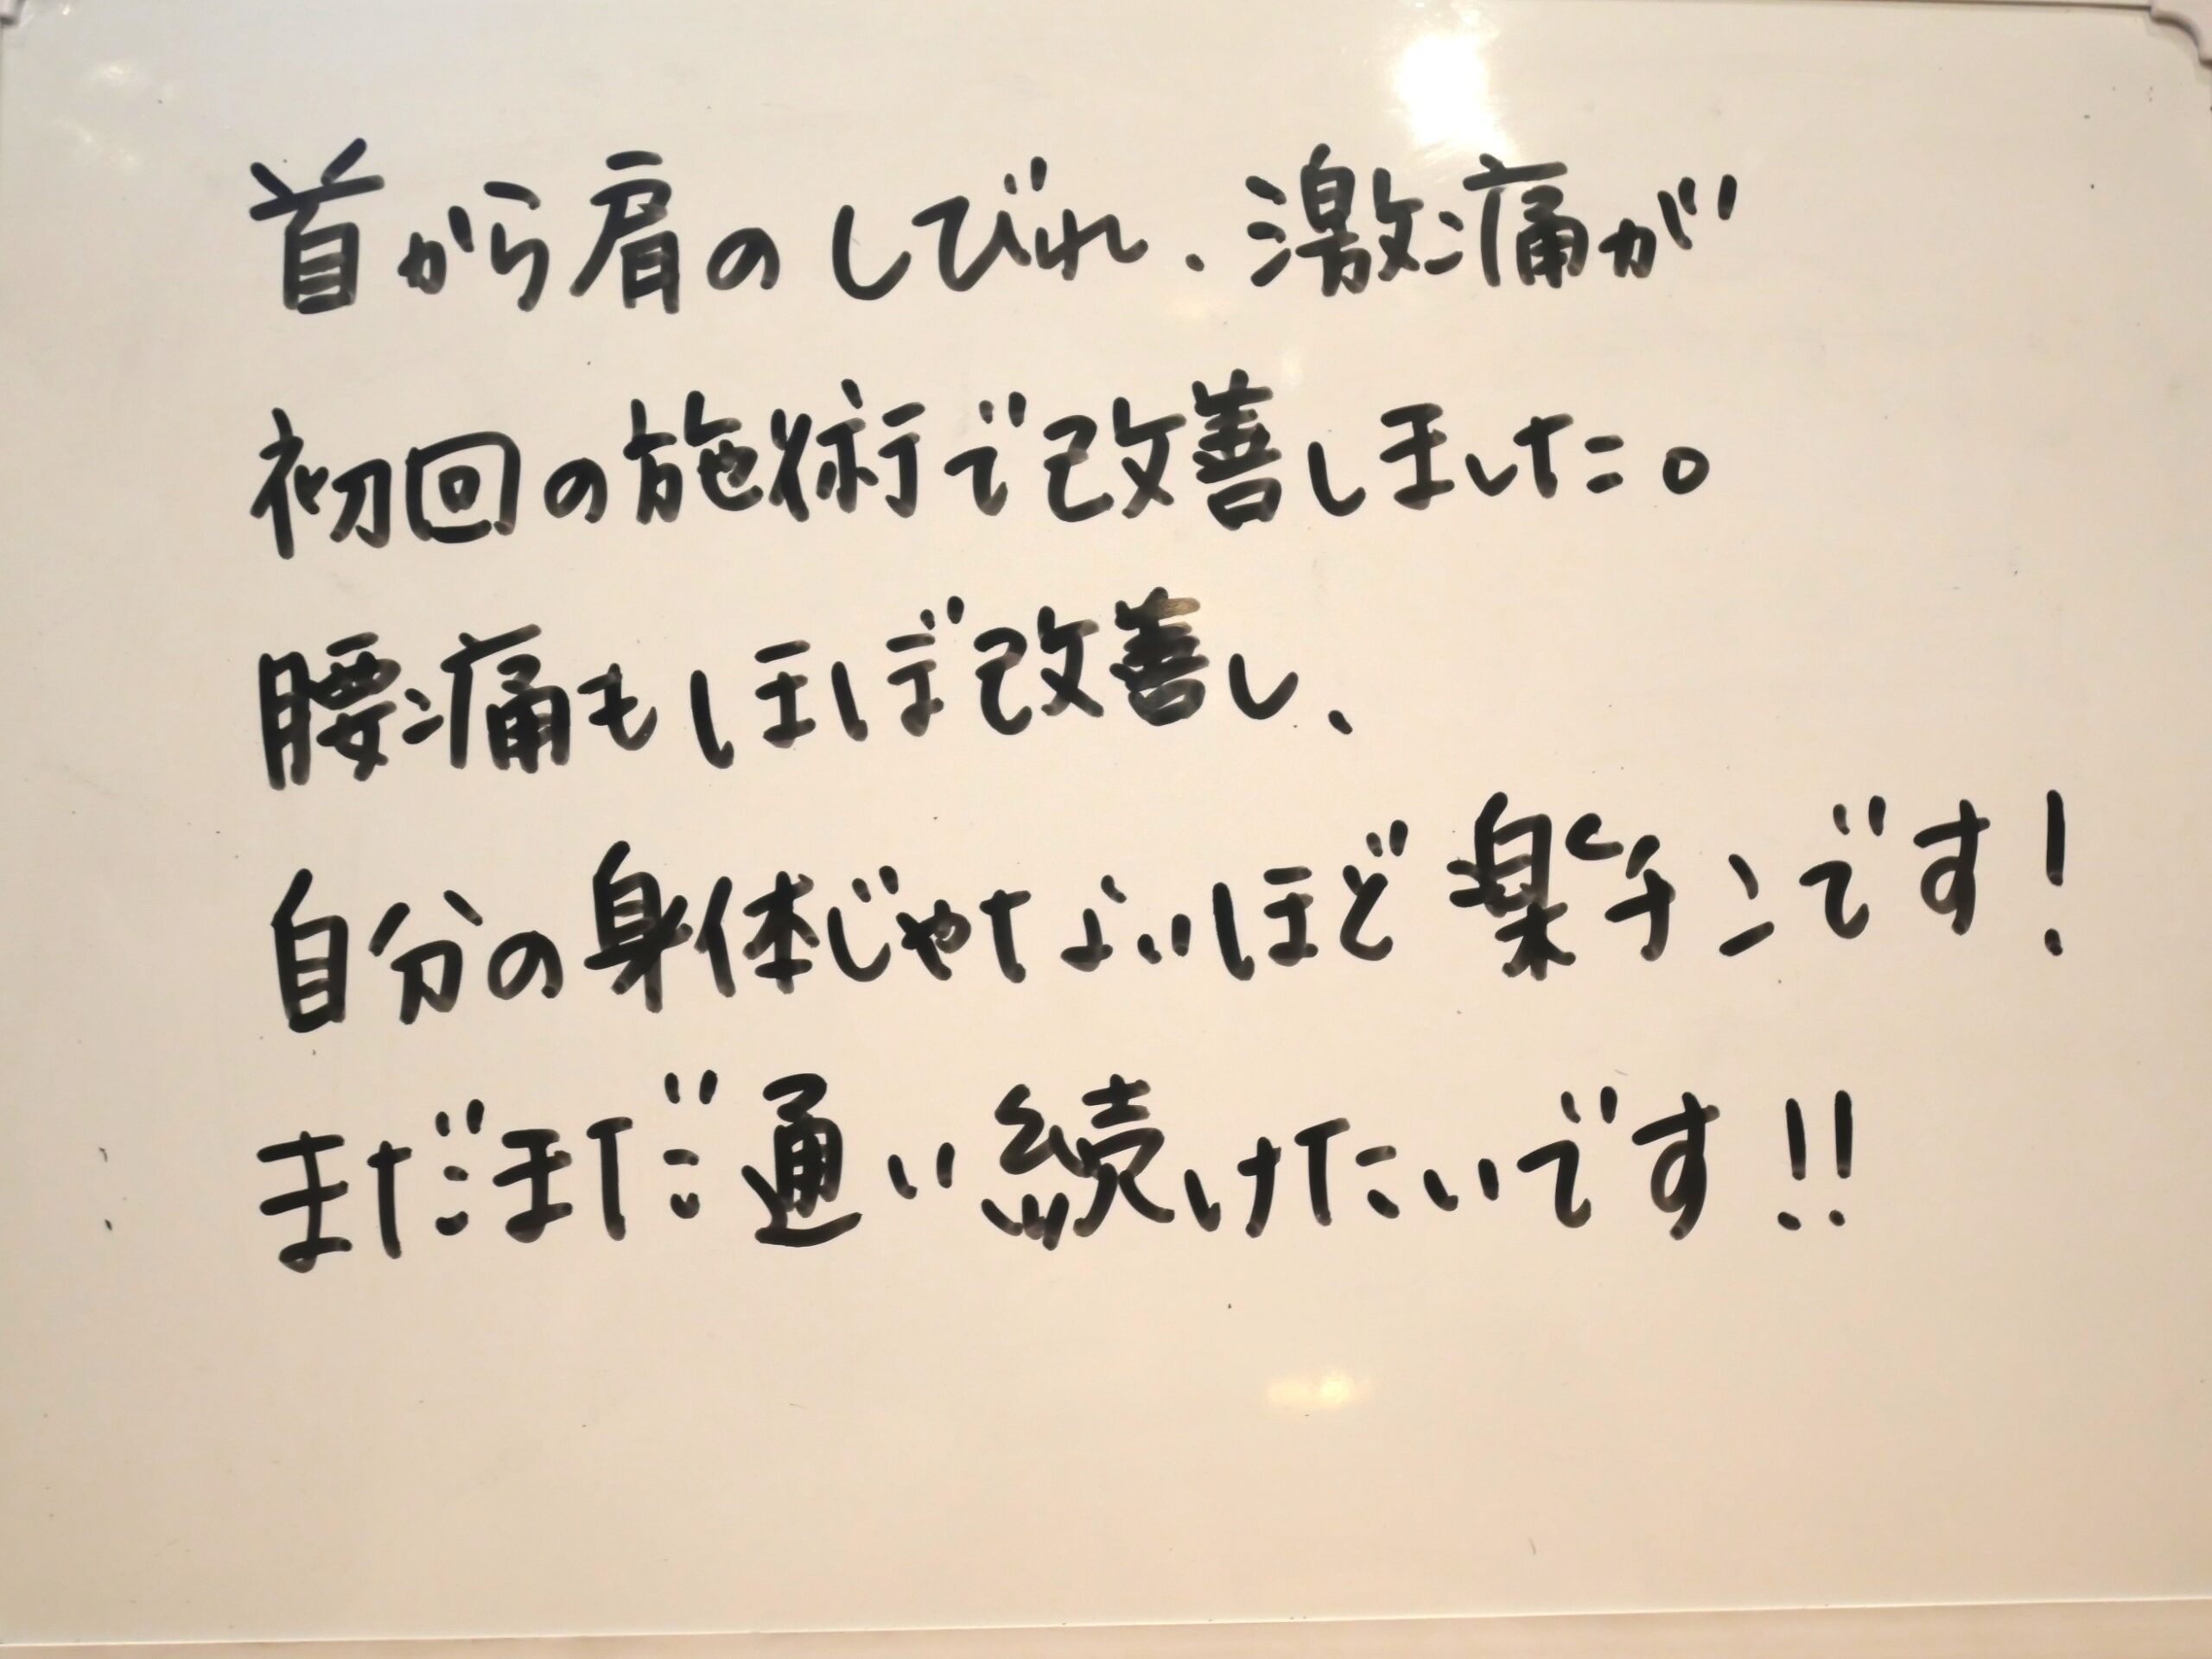 首から肩のしびれ、激痛が
初回の施術で改善しました。
腰痛もほぼ改善し、
自分の身体じゃないほど楽チンです！
まだまだ通い続けたいです！！